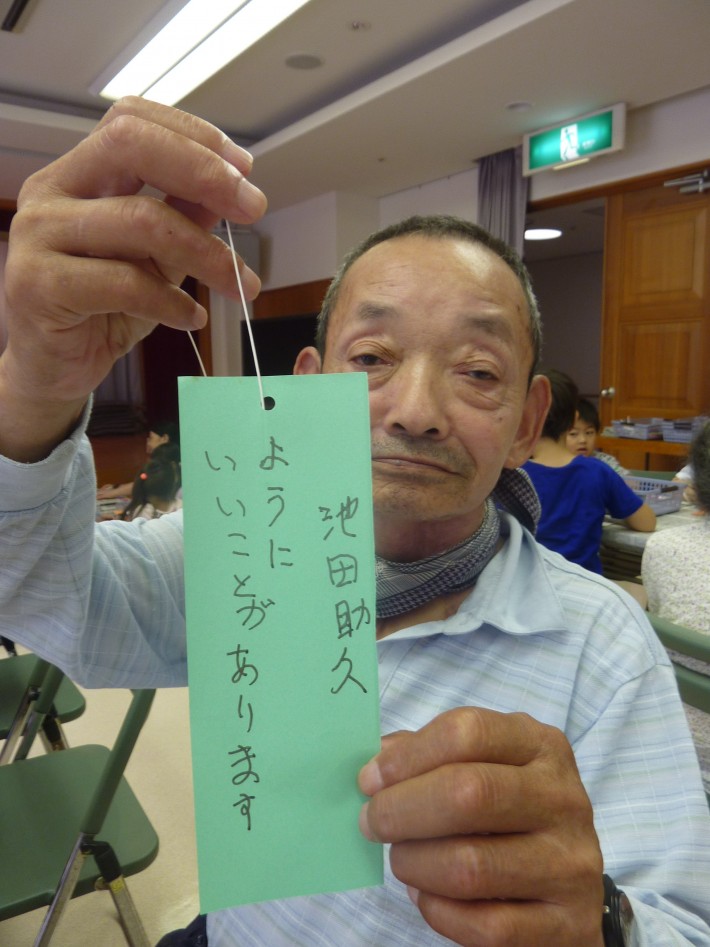 池田助久
ように
いいことがあります